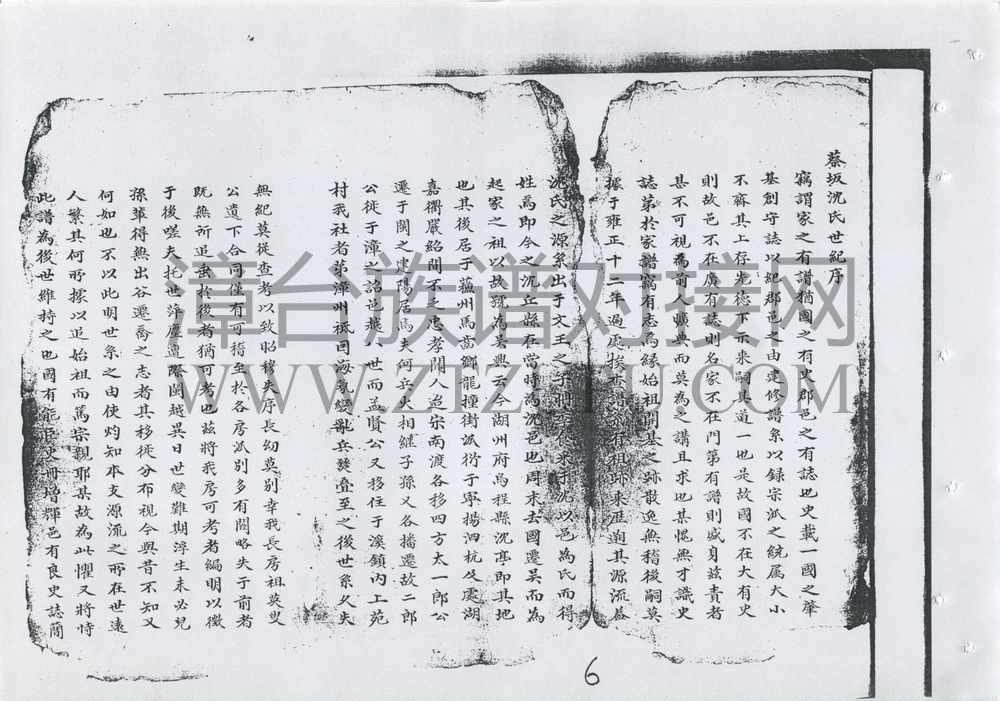 蔡坂沈氏世紀序
竊謂家之有譜猶國之有史郡邑之有誌也史載一國之肇
基創守誌以紀郡邑之由建修譜系以録宗派之統属大小
不齋其上存先德下示來嗣其道一也是故國不在大有史
則故邑不在廣有誌則名家不在門第有譜則盛身兹責者
甚不可視為前人曠典而莫為之講且求也某愧無才識史
誌第於家譜竊有志焉緣始祖開基之跡散逸無稽後嗣莫
據于雍正十二年遍處挨查譜系有祖跡來歷遡其源流盖
沈氏之源系出于文王之子聃季食采于沈以邑為氏而得
姓焉即今之沈丘縣在當時為沈邑也周末去國遷吴而為
起家之祖以故號為吴興云今湖州府烏程縣沈亭即其地
也其後居于蘊州馬崮鄉龍撞街派衍于寧揚泗杭及處湖
嘉衢嚴紹間不乏忠孝聞人迨宋南渡各移四方太一郎公
遷于閩之建陽居焉夫何兵火相繼子孫又各播遷故二郎
公徙于漳之詔邑越 世而孟賢公又移住于溪鎮内上苑
村我社者第漳州祗同海氛變亂兵發叠至之後世系久失
無紀莫從查考以致昭穆失序長幼莫别幸我長房祖英叟
公遺下合同僅有可稽至於各房派别多有闕略失于前者
既無所追垂於後者猶可考也兹將我房可考者編明以徵
于後嗟夫托世萍廬遭際閩越異日世變難期淳生未必兒
孫輩得無出谷遷喬之志者其移徙分布視今與昔不知又
何如也不以此明世系之由使灼知本支源流之所在世遠
人繁其何所據以追始祖而篤宗親耶某故為此懼又將恃
此譜為後世維持之也國有能臣史冊增輝邑有良史誌簡
6
漳台族谱对接网
WWW.ZTZUPU.COM